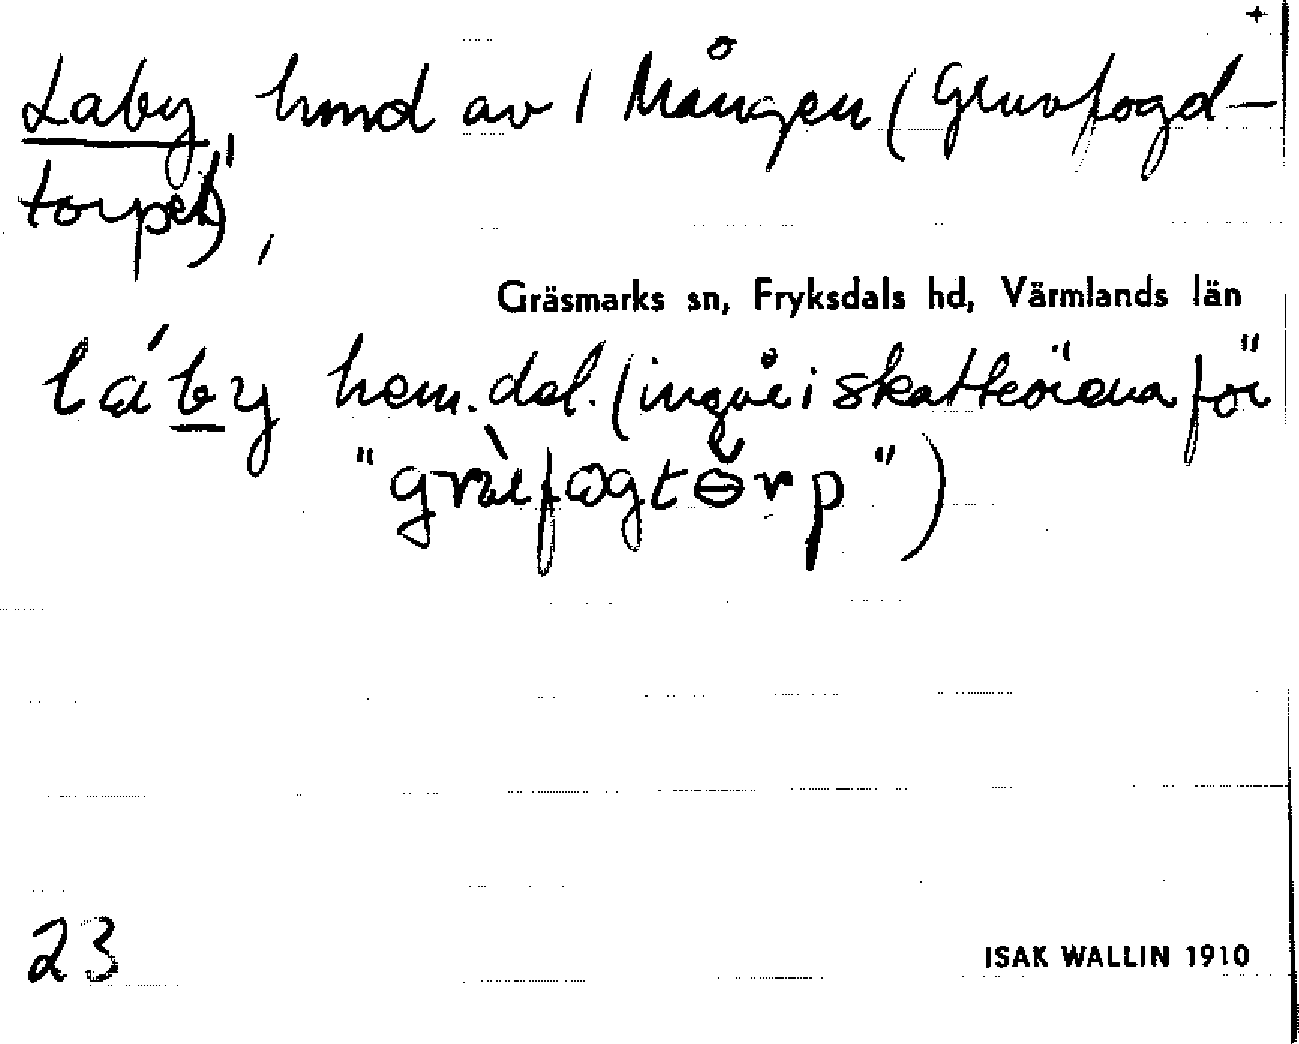 +
Laby, hmd av 1 Mången (Gruvfogd-
torpet)",
Gräsmarks sn, Fryksdals hd, Värmlands län
láby hem.del. (ingår i skatteörena för"
"grùfogtörp")
23
ISAK WALLIN 1910